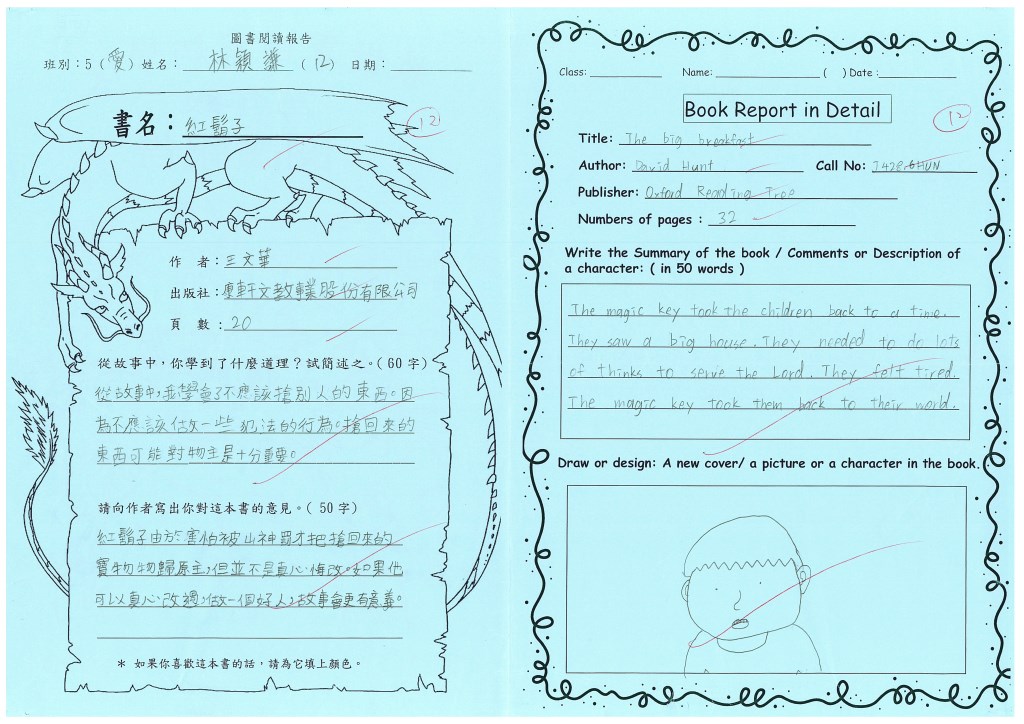 圖書閱讀報告
班別：5 (愛) 姓名：林穎謙 (12) 日期：
書名：紅鬍子
12
作 者：王文華
出版社：東軒文教事業股份有限公司
頁 數：20
從故事中，你學到了什麼道理？試簡述之。( 60 字)
從故事中，我學會了不應該搶別人的東西。因
為不應該做一些犯法的行為。搶回來的
東西可能對物主是十分重要。
請向作者寫出你對這本書的意見。( 50 字)
紅鬍子由於害怕被山神罰才把搶回來的
寶物物歸原主，但並不是真心悔改。如果他
可以真心改過，做一個好人，故事會更有意義。
* 如果你喜歡這本書的話，請為它填上顏色。
Class: Name: ( ) Date :
Book Report in Detail
12
Title: The big breakfast
Author: David Hunt Call No: J428.6HUN
Publisher: Oxford Reading Tree
Numbers of pages : 32
Write the Summary of the book / Comments or Description of
a character: ( in 50 words )
The magic key took the children back to a time.
They saw a big house. They needed to do lots
of thinks to serve the Lord. They felt tired.
The magic key took them back to their world.
Draw or design: A new cover/ a picture or a character in the book.